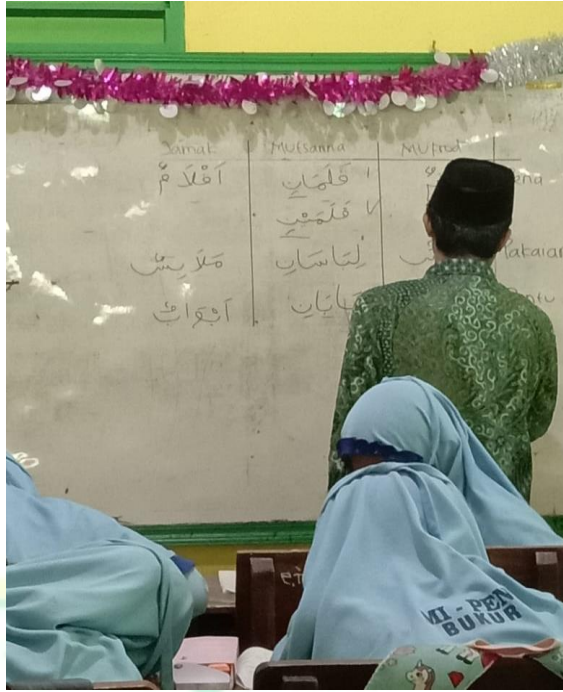 Jamak Mutsanna Mufrod
اَقْلَامٌ ١ قَلَمَانِ
٢ قَلَمَيْنِ
مَلَابِسٌ لِبَاسَانِ Pakaian
اَبْوَابٌ بَابَانِ
MI - PEN
BUKUR